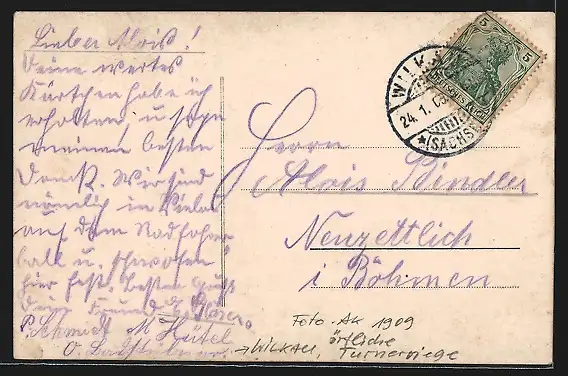 Lieber Alois!
Deine wertes
Kärtchen habe ich
erhalten u sage
meinen besten
Dank. Wir sind
nämlich in
auf dem Radfahrer
ball u.
hier fest. Besten Gruß
Dein Freund
P. Schmidt M Hütel
O.
Herrn
Alois Bindler
Neuzettlich
i Böhmen
5
5
Deutsches Reich
WILKAU
24. 1. 09
*(SACHS
Foto-AK 1909
→ WILKAU, örtliche
Turnerriege